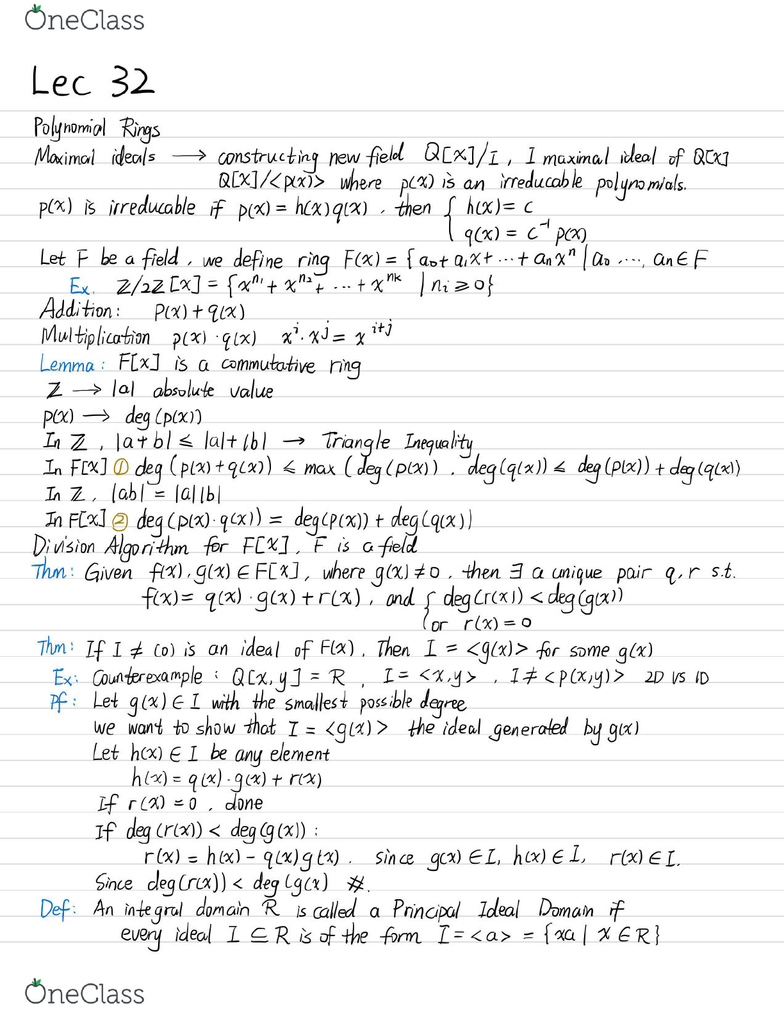 OneClass
Lec 32
Polynomial Rings
Maximal ideals → constructing new field Q[x]/I, I maximal ideal of Q[x]
Q[x]/<p(x)> where p(x) is an irreducable polynomials.
p(x) is irreducable if p(x) = h(x)q(x), then { h(x) = c
q(x) = c⁻¹ p(x)
Let F be a field, we define ring F(x) = {a₀ + a₁x + ⋯ + aₙxⁿ | a₀ ⋯, aₙ ∈ F
Ex. Z/2Z [x] = {xⁿ¹ + xⁿ² + ⋯ + xⁿᵏ | nᵢ ≥ 0}
Addition: P(x) + q(x)
Multiplication p(x) · q(x) xⁱ · xʲ = xⁱ⁺ʲ
Lemma: F[x] is a commutative ring
Z → |a| absolute value
p(x) → deg(p(x))
In Z, |a+b| ≤ |a| + |b| → Triangle Inequality
In F[x] ① deg(p(x)+q(x)) ≤ max(deg(p(x)), deg(q(x)) ≤ deg(p(x)) + deg(q(x))
In Z, |ab| = |a||b|
In F[x] ② deg(p(x)·q(x)) = deg(p(x)) + deg(q(x))
Division Algorithm for F[x], F is a field
Thm: Given f(x), g(x) ∈ F[x], where g(x) ≠ 0, then ∃ a unique pair q, r s.t.
f(x) = q(x) · g(x) + r(x), and { deg(r(x)) < deg(g(x))
or r(x) = 0
Thm: If I ≠ (0) is an ideal of F(x), Then I = <g(x)> for some g(x)
Ex: Counterexample: Q[x,y] = R, I = <x,y>, I ≠ <p(x,y)> 2D vs 1D
Pf: Let g(x) ∈ I with the smallest possible degree
we want to show that I = <g(x)> the ideal generated by g(x)
Let h(x) ∈ I be any element
h(x) = q(x) · g(x) + r(x)
If r(x) = 0, done
If deg(r(x)) < deg(g(x)):
r(x) = h(x) - q(x)g(x). since g(x) ∈ I, h(x) ∈ I, r(x) ∈ I.
Since deg(r(x)) < deg(g(x) #.
Def: An integral domain R is called a Principal Ideal Domain if
every ideal I ⊆ R is of the form I = <a> = {xa | x ∈ R}
OneClass